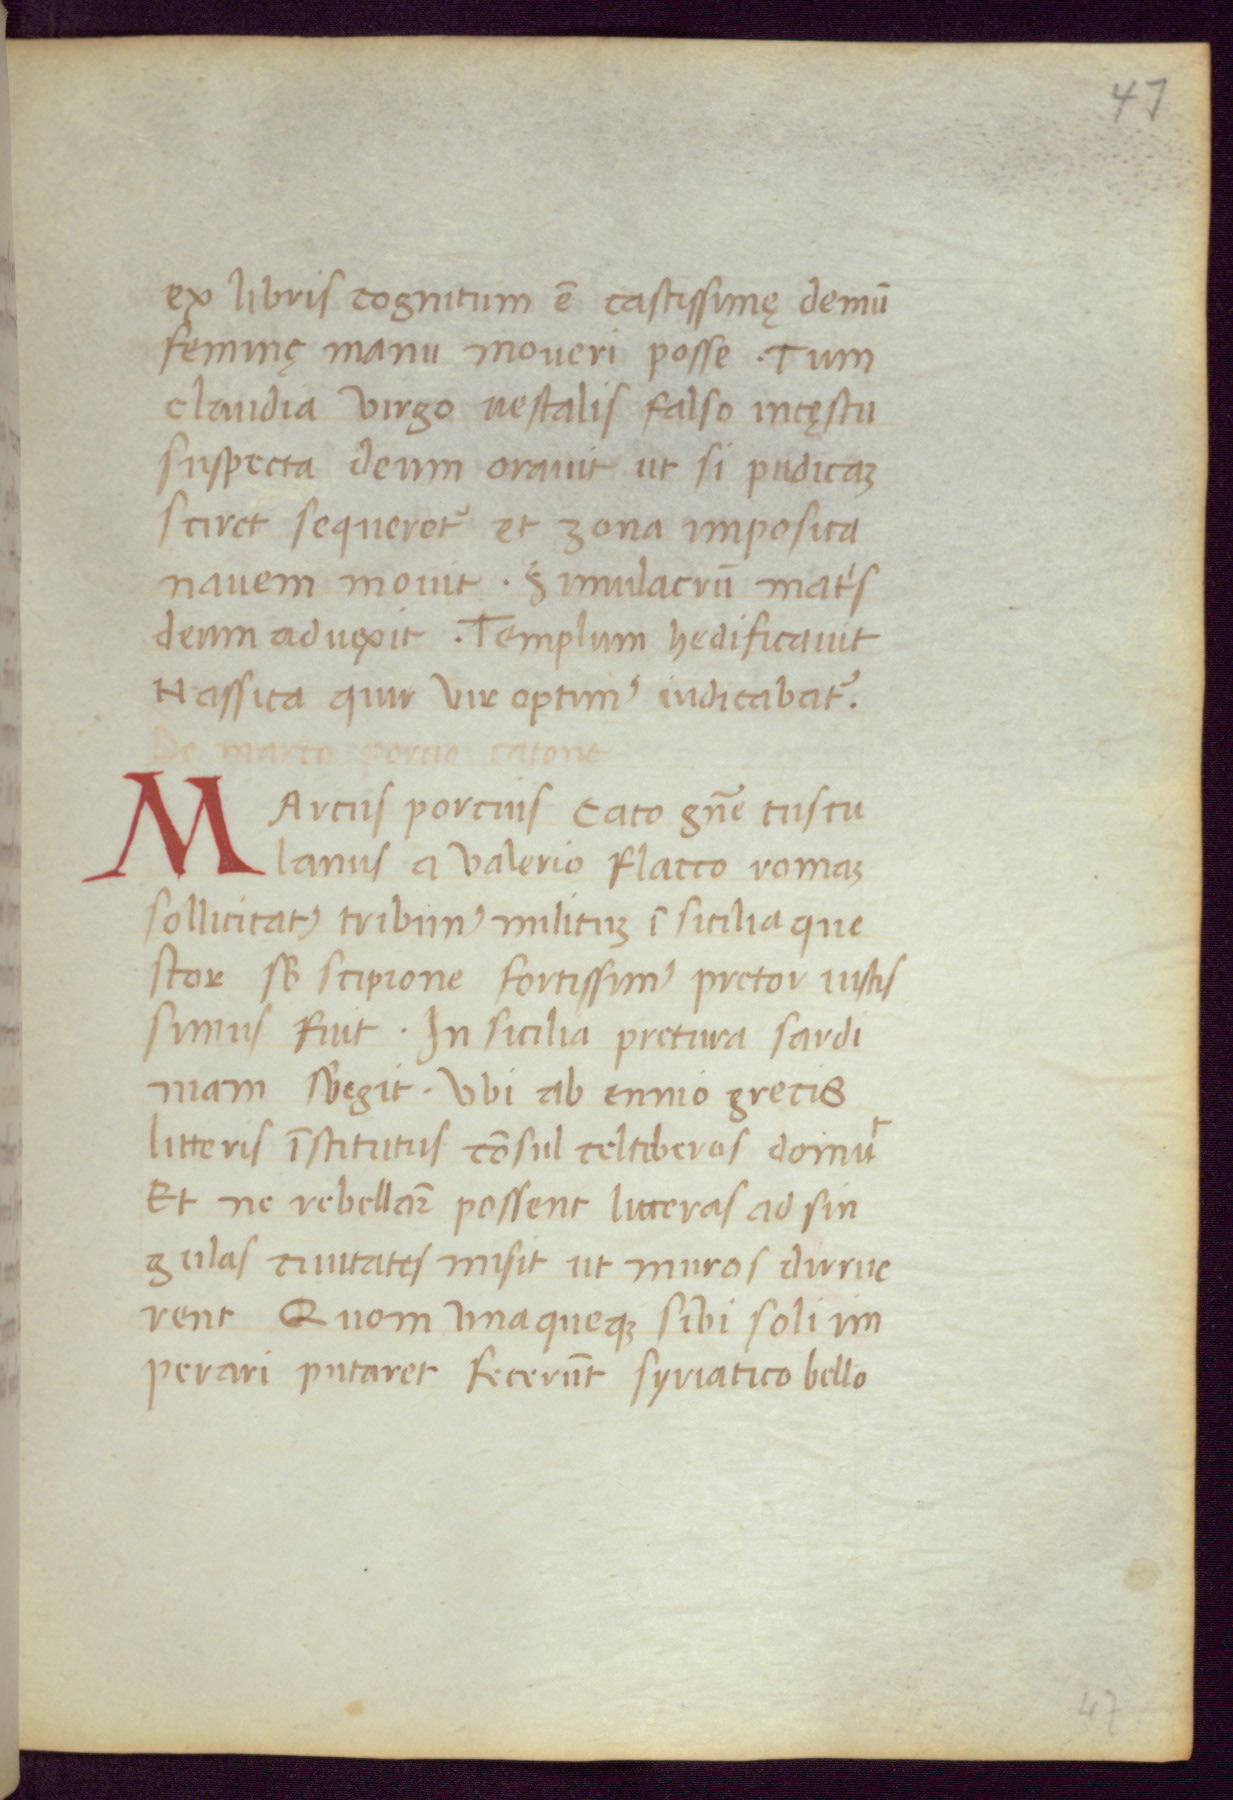 47
ex libris cognitum ē castissimę demū
feminę manu moueri posse · Tum
claudia virgo uestalis falso incęstu
suspecta deum orauit ut si pudicaꝫ
sciret sequeret᷑ et zona imposita
nauem mouit · Simulacrū mat's
deum aduexit · Templum hedificauit
Nassica quir vir optim᾽ iudicabat᷑.
De marco porcio catone
MArcus porcius Cato gn̄e tuscu
lanus a valerio Flacco romaꝫ
sollicitat᾽ tribun᾽ milituꝫ ī sicilia que
stor sƀ scipione fortissim᾽ pretor iustis
simus fuit · In sicilia pretura sardi
niam sƀegit · Vbi ab ennio grecis
litteris īstitutus cōsul celtiberos domūt
Et ne rebellar̄ possent litteras ad sin
gulas ciuitates misit ut muros dirrue
rent Quom vnaqueqꝫ sibi soli im
perari putaret fecerūt syriatico bello
47